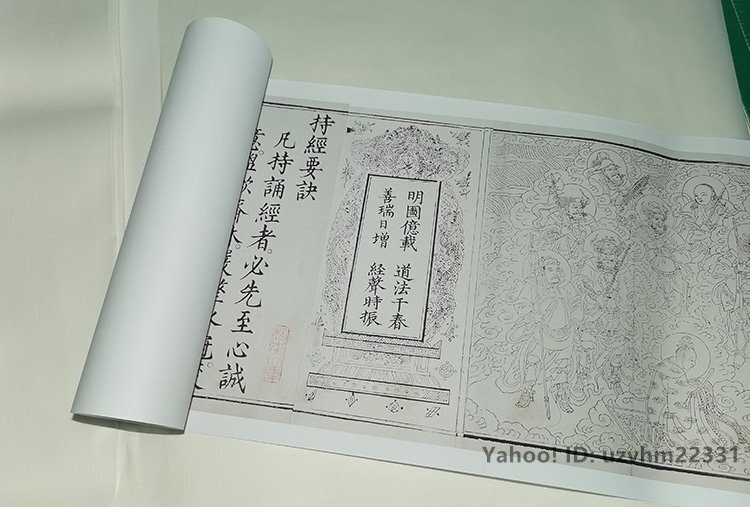 明圖億載 道法千春
善瑞日增 経聲時振
持經要訣
凡持誦經者。必先至心誠
Yahoo! ID: uzvhm22331